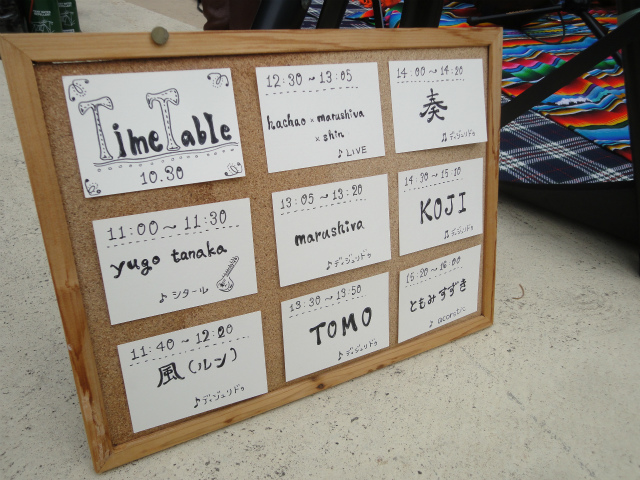 Time Table
10.30
11:00 ~ 11:30
yugo tanaka
♪ シタール
11:40 ~ 12:20
風(ルン)
♪ディジュリドゥ
12:30 ~ 13:05
kachao × marushiva
× shin
♪ LIVE
13:05 ~ 13:20
marushiva
♪ディジュリドゥ
13:30 ~ 13:50
TOMO
♪ディジュリドゥ
14:00 ~ 14:20
奏
♫ディジュリドゥ
14:30 ~ 15:10
KOJI
♫ディジュリドゥ
15:20 ~ 16:00
ともみすずき
♪ acorstic